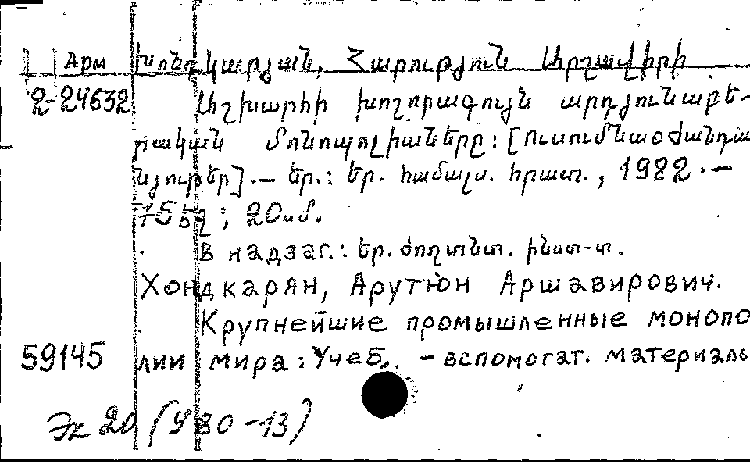 Арм Խոնդկարյան, Հարություն Արշավիրի
2-24632 Աշխարհի խոշորագույն արդյունաբե-
րական մոնոպոլիաները: [Ուսումնաօժանդա
նյութեր].— Եր.: Եր. համալս. հրատ., 1982.—
75 էջ; 20սմ.
В надзаг.: Եր. ժողտնտ. ինստ-տ.
Хондкарян, Арутюн Аршавирович.
Крупнейшие промышленные монопо
59145 лии мира: Учеб. - вспомогат. материалы
Эк 20 (У80-13)